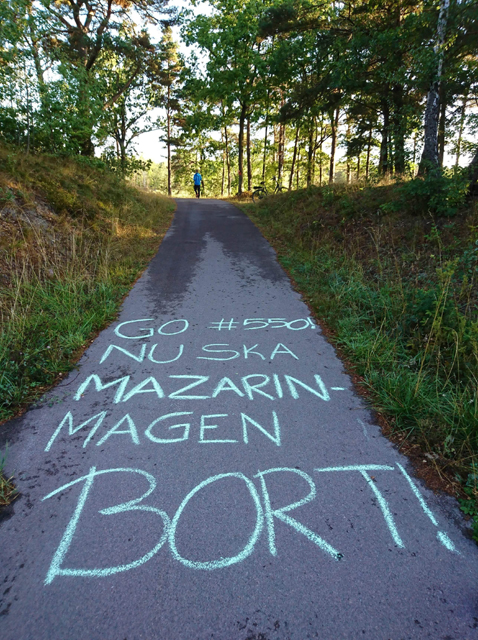 GO #550!
NU SKA
MAZARIN-
MAGEN
BORT!